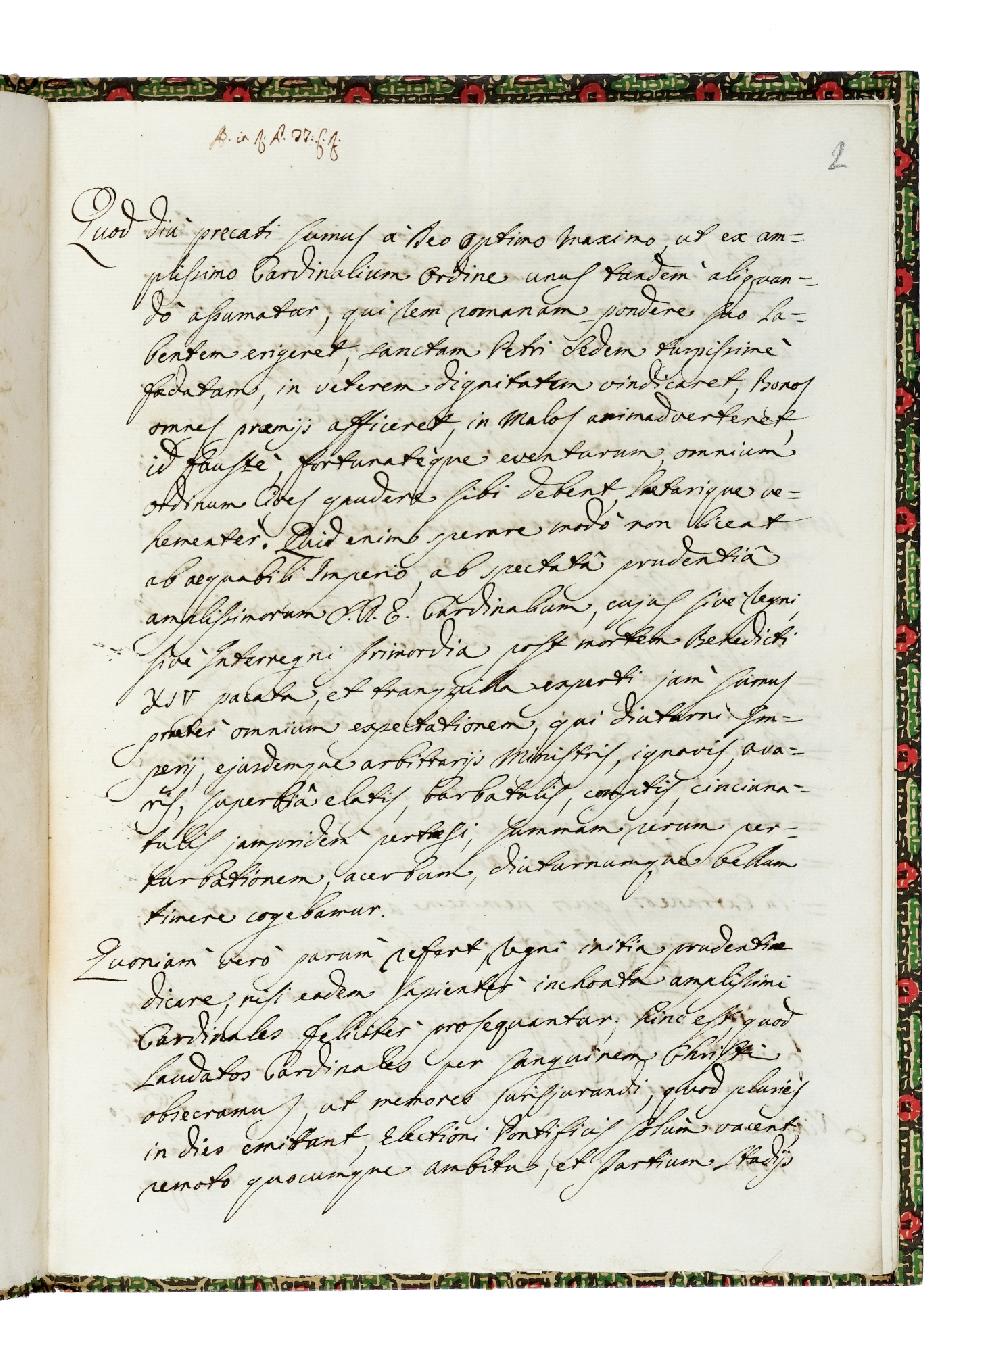 2
Quod diù precati sumus à Deo Optimo Maximo, ut ex am=
plissimo Cardinalium Ordine unus tandem aliquan=
dò assumatur, qui rem romanam pondere suo la=
bentem erigeret, sanctam Petri Sedem turpissimè
fædatam, in veterem dignitatem vindicaret, Bonos
omnes præmijs afficeret, in Malos animadverteret,
id faustè, fortunatèque eventurum, omnium
ordinum Cives gaudere sibi debent, lætarique ve=
hementer. Quid enim sperare modò non liceat
ab æquabili Imperio, ab spectatâ prudentiâ
amplissimorum S. R. E. Cardinalium, cujus sive Regni,
sivè Interregni primordia post mortem Benedicti
XIV pacata, et tranquilla experti jam sumus
præter omnium expectationem, qui diuturni Im=
perij, ejusdemque arbitrarijs Ministris, ignavis, ava=
ris, superbiâ elatis, barbatulis, comatis, cincinna=
tulis jampridem pertæsi, summam rerum per=
turbationem, acerbum, diuturnumque bellum
timere cogebamur.
Quoniam verò parum refert, Regni initia prudentiæ
dicare, nisi eadem sapienter inchoata amplissimi
Cardinales feliciter prosequantur; hinc est quod
Laudatos Cardinales per sanguinem Christi
obsecramus, ut memores jurisjurandi, quod pluries
in dies emittunt, Electioni Pontificis solùm vacent,
remoto quocumque ambitu, et Partium Studijs